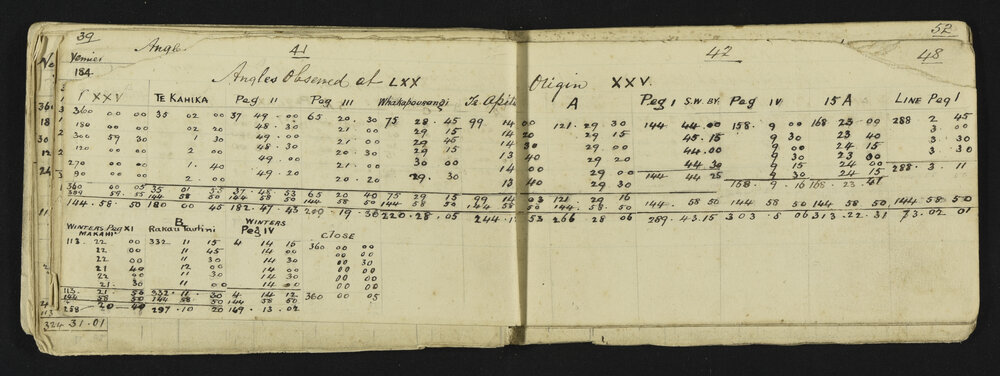 39 52
Angle 41 42 48
Vernier
184
Angles Observed at LXX Origin XXV
XXV TE KAHIKA Peg II Peg III Whakapoorangi Te Apiti A Peg I S.W. BY. Peg IV 15 A LINE Peg I
360 00 00 35 02 00 37 49 00 65 20 30 75 28 45 99 14 00 121 29 30 144 44 00 158 9 00 168 23 00 288 2 45
180 00 00 02 20 48 30 21 00 29 15 14 20 29 15 45 15 9 30 23 40 3 00
300 59 30 1 30 49 00 21 00 29 45 14 30 29 30 44 00 9 00 24 15 3 30
120 00 00 2 00 48 30 20 30 29 15 13 40 29 20 44 30 9 30 23 00 3 30
270 00 00 1 40 49 00 21 00 30 00 14 00 29 00 144 44 25 9 15 24 00 288 3 11
90 00 00 2 00 49 20 20 20 29 30 13 40 29 30 9 30 24 15
360 00 05 158 9 16 168 23 41
359 59 55 35 01 55 37 48 53 65 20 40 75 29 15 99 14 03 121 29 16
144 58 50 144 58 50 144 58 50 144 58 50 144 58 50 144 58 50 144 58 50 144 58 50 144 58 50 144 58 50
144 58 50 180 00 45 182 47 43 210 19 36 220 28 05 244 12 53 266 28 06 289 43 15 303 8 06 313 22 31 73 02 01
WINTERS Peg XI B WINTERS
MAKAHI Rakau Tautini Peg IV CLOSE
113 22 00 332 11 15 4 14 15 360 00 00
22 00 11 45 14 00 00 00
22 00 11 30 14 30 00 30
21 40 12 00 14 00 00 00
22 40 11 30 14 30 00 00
21 30 11 00 14 00 00 00
113 21 56 332 11 30 4 14 12 360 00 05
144 58 50 144 58 50 144 58 50
258 20 49 297 10 20 149 13 02
324 31 01